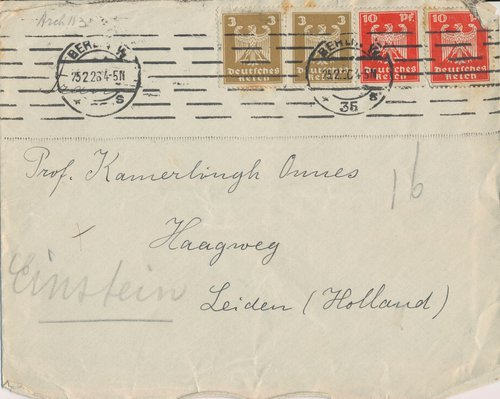 Arch 113
3 3 3 3 10 Pf. 10 Pf.
Deutsches Reich Deutsches Reich Deutsches Reich Deutsches Reich
BERLIN W
25.2.26 4-5N
* s
BERLIN W
25.2.26 4-5N
* 35 s
Prof. Kamerlingh Onnes
16
Haagweg
Einstein
Leiden (Holland)